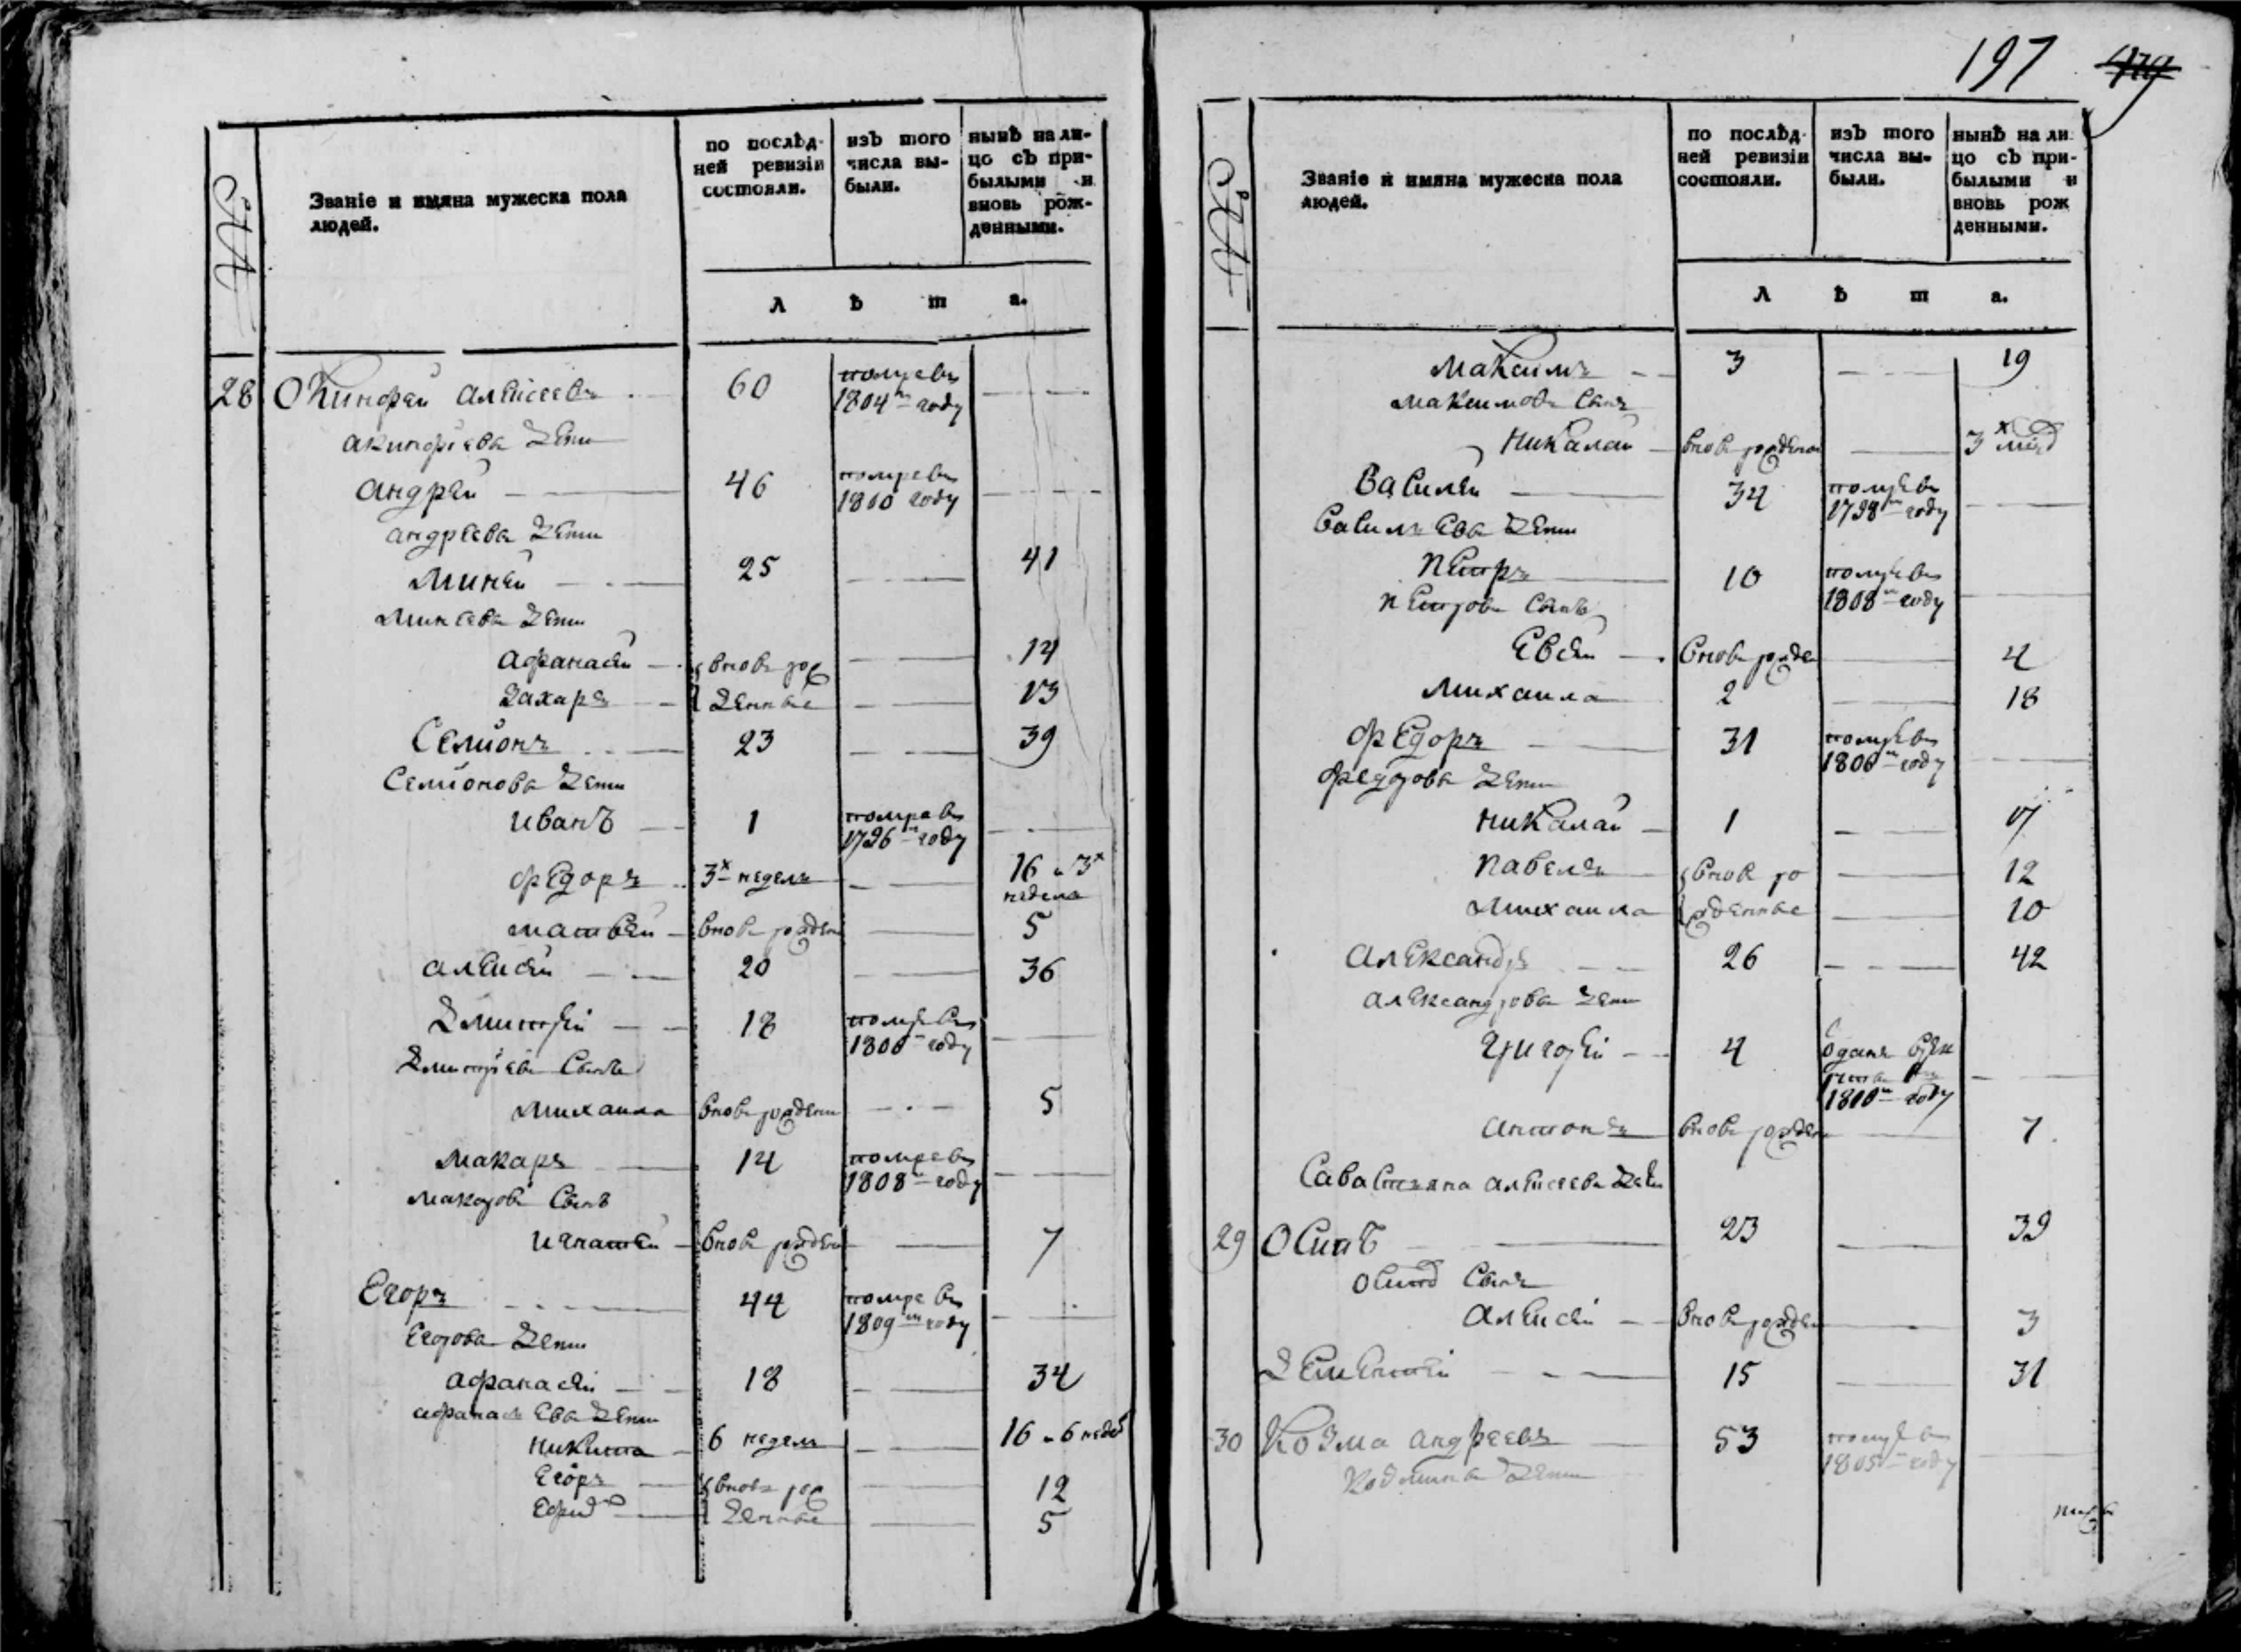 Званіе и имяна мужеска пола
людей.
по послѣд-
ней ревизіи
состояли.
изъ того
числа вы-
были.
нынѣ на ли-
цо съ при-
былыми и
вновь рож-
денными.
Л ѣ т а.
28 Окинфей алексеевъ 60 помревъ
1804м году
акинфиева дети
андрей 46 помревъ
1800 году
андреева дети
Миней 25 41
Минеева дети
афанасей вновь рож 14
Захаръ денные 13
Семионъ 23 39
Семионова дети
иванъ 1 помревъ
1796м году
федоръ 3х недель 16 и 3х
недель
матвей вновь рожден 5
алексей 20 36
Дмитрей 18 помревъ
1806 году
Дмитриевъ Сынъ
михаила вновь рожден 5
Макаръ 14 помревъ
1808 году
макаровъ Сынъ
игнатей вновь рожден 7
Егоръ 44 помревъ
1809м году
Егорова дети
афанасей 18 34
афанасьева дети
никита 6 недель 16 и 6 недел
Егоръ вновь рож 12
денные 5
197
479
Званіе и имяна мужеска пола
людей.
по послѣд-
ней ревизіи
состояли.
изъ того
числа вы-
были.
нынѣ на ли
цо съ при-
былыми и
вновь рож
денными.
Л ѣ т а.
Максимъ 3 19
максимовъ Сынъ
Никалай вновь рожденой 3х мѣс
Василей 34 помревъ
1798м году
Васильева дети
Петръ 10 помревъ
1808м году
петровъ Сынъ
Евсей вновь рожден 4
Михаила 2 18
федоръ 31 помревъ
1806м году
федорова дети
никалай 1 17
павелъ вновь ро 12
михаила жденные 10
александръ 26 42
александрова дети
григорей 4 одданъ врек
руты въ
1810м году
антонъ вновь рожден 7
Савастьяна алексеева дети
29 Осипъ 23 39
Осиповъ Сынъ
алексей вновь рожден 3
Дементей 15 31
30 Козма андреевъ 53 помревъ
1805м году
Козмина дети